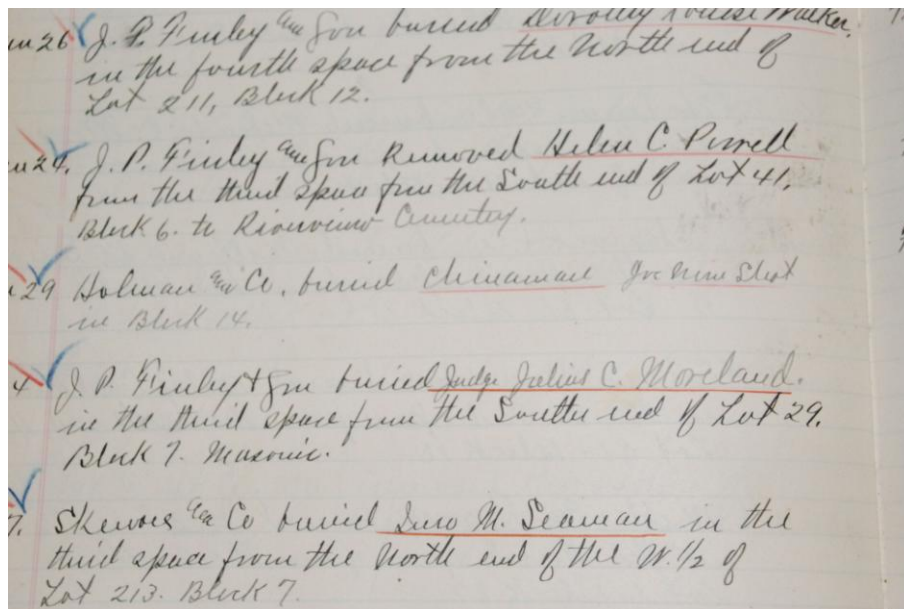 26 J. P. Finley and Son buried Dorothy Louise Walker.
in the fourth space from the North end of
Lot 211, Block 12.
J. P. Finley and Son Removed Helen C. Powell
from the third space from the South end of Lot 41,
Block 6. to Riverview Cemetery.
29 Holman and Co. buried Chinaman
in Block 14.
4 J. P. Finley & Son buried Judge Julius C. Moreland.
in the third space from the South end of Lot 29.
Block 7. Masonic.
7. Skewes and Co buried M. Seaman in the
third space from the North end of the W. 1/2 of
Lot 213. Block 7.